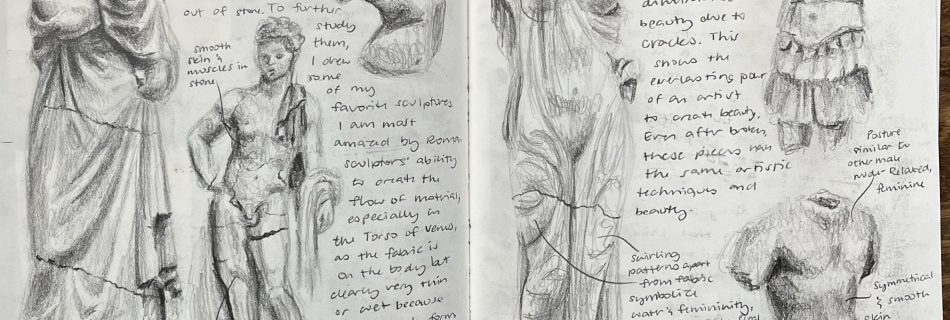 out of stone. To further
study
them,
I drew
some
of my
favorite sculptures.
I am most
amazed by Roman
sculptors' ability
to create the
flow of material,
especially in
the Torso of Venus,
as the fabric is
on the body but
clearly very thin
or wet because
form
smooth
skin &
muscles in
stone
beauty due to
cracks. This
shows the
everlasting
of an artist
to create beauty.
Even after broken,
these pieces have
the same artistic
techniques and
beauty.
swirling
patterns apart
from fabric
symbolize
water & femininity,
Posture
similar to
other male
nude- Relaxed,
feminine
Symmetrical
& smooth
skin